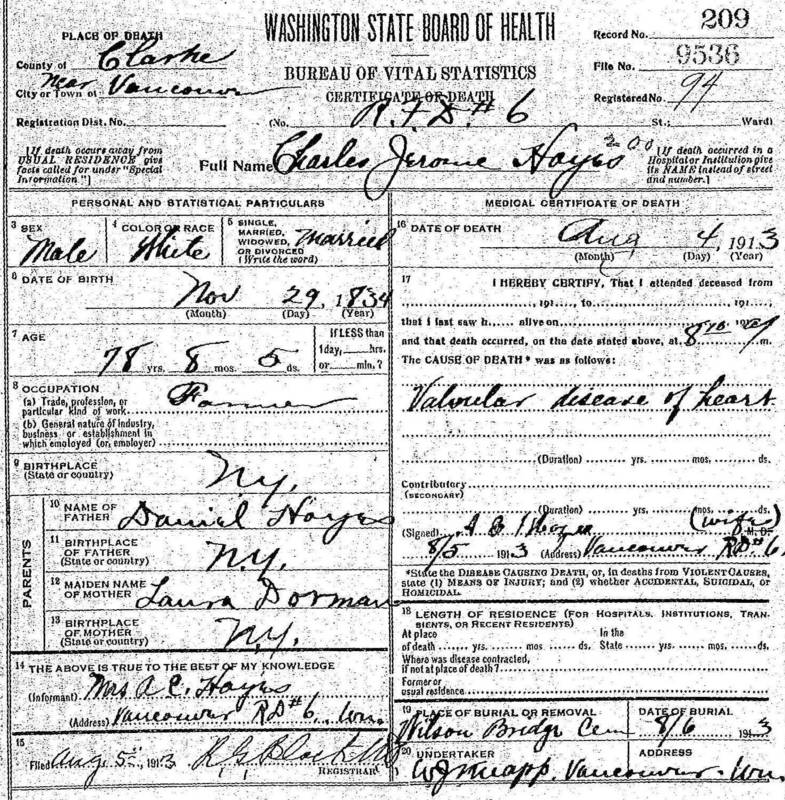 WASHINGTON STATE BOARD OF HEALTH
BUREAU OF VITAL STATISTICS
CERTIFICATE OF DEATH
PLACE OF DEATH
County of Clarke
near
City or Town of Vancouver
Registration Dist. No.
(No. R.F.D. # 6 St.; Ward)
Record No. 209
File No. 9536
Registered No. 94
[If death occurs away from
USUAL RESIDENCE give
facts called for under "Special
Information"]
Full Name Charles Jerome Hayes 200
[If death occurred in a
Hospital or Institution give
its NAME instead of street
and number.]
PERSONAL AND STATISTICAL PARTICULARS
3 SEX
Male
4 COLOR OR RACE
White
5 SINGLE,
MARRIED,
WIDOWED,
OR DIVORCED
(Write the word)
Married
6 DATE OF BIRTH
Nov 29, 1834
(Month) (Day) (Year)
7 AGE
78 yrs. 8 mos. 5 ds.
If LESS than
1 day, hrs.
or min.?
8 OCCUPATION
(a) Trade, profession, or
particular kind of work
Farmer
(b) General nature of industry,
business or establishment in
which employed (or, employer)
9 BIRTHPLACE
(State or country)
N.Y.
PARENTS
10 NAME OF
FATHER
Daniel Hayes
11 BIRTHPLACE
OF FATHER
(State or country)
N.Y.
12 MAIDEN NAME
OF MOTHER
Laura Dorman
13 BIRTHPLACE
OF MOTHER
(State or country)
N.Y.
14 THE ABOVE IS TRUE TO THE BEST OF MY KNOWLEDGE
(Informant) Mrs A C. Hayes
(Address) Vancouver RD # 6. Wn.
15
Filed Aug 5 1913
REGISTRAR
MEDICAL CERTIFICATE OF DEATH
16 DATE OF DEATH
Aug 4, 1913
(Month) (Day) (Year)
17 I HEREBY CERTIFY, That I attended deceased from
, 191 , to , 191 ,
that I last saw h alive on
and that death occurred, on the date stated above, at m.
The CAUSE OF DEATH* was as follows:
Valvular disease of heart
(Duration) yrs. mos. ds.
Contributory
(SECONDARY)
(Duration) yrs. mos. ds.
(Signed) (wife)
8/5 1913 (Address) Vancouver RD # 6
*State the DISEASE CAUSING DEATH, or, in deaths from VIOLENT CAUSES,
state (1) MEANS OF INJURY; and (2) whether ACCIDENTAL, SUICIDAL, or
HOMICIDAL.
18 LENGTH OF RESIDENCE (FOR HOSPITALS, INSTITUTIONS, TRAN-
SIENTS, OR RECENT RESIDENTS)
At place In the
of death yrs. mos. ds. State yrs. mos. ds.
Where was disease contracted,
if not at place of death?
Former or
usual residence
19 PLACE OF BURIAL OR REMOVAL
Wilson Bridge Cem
DATE OF BURIAL
8/6 1913
20 UNDERTAKER
W J Knapp.
ADDRESS
Vancouver. Wn.